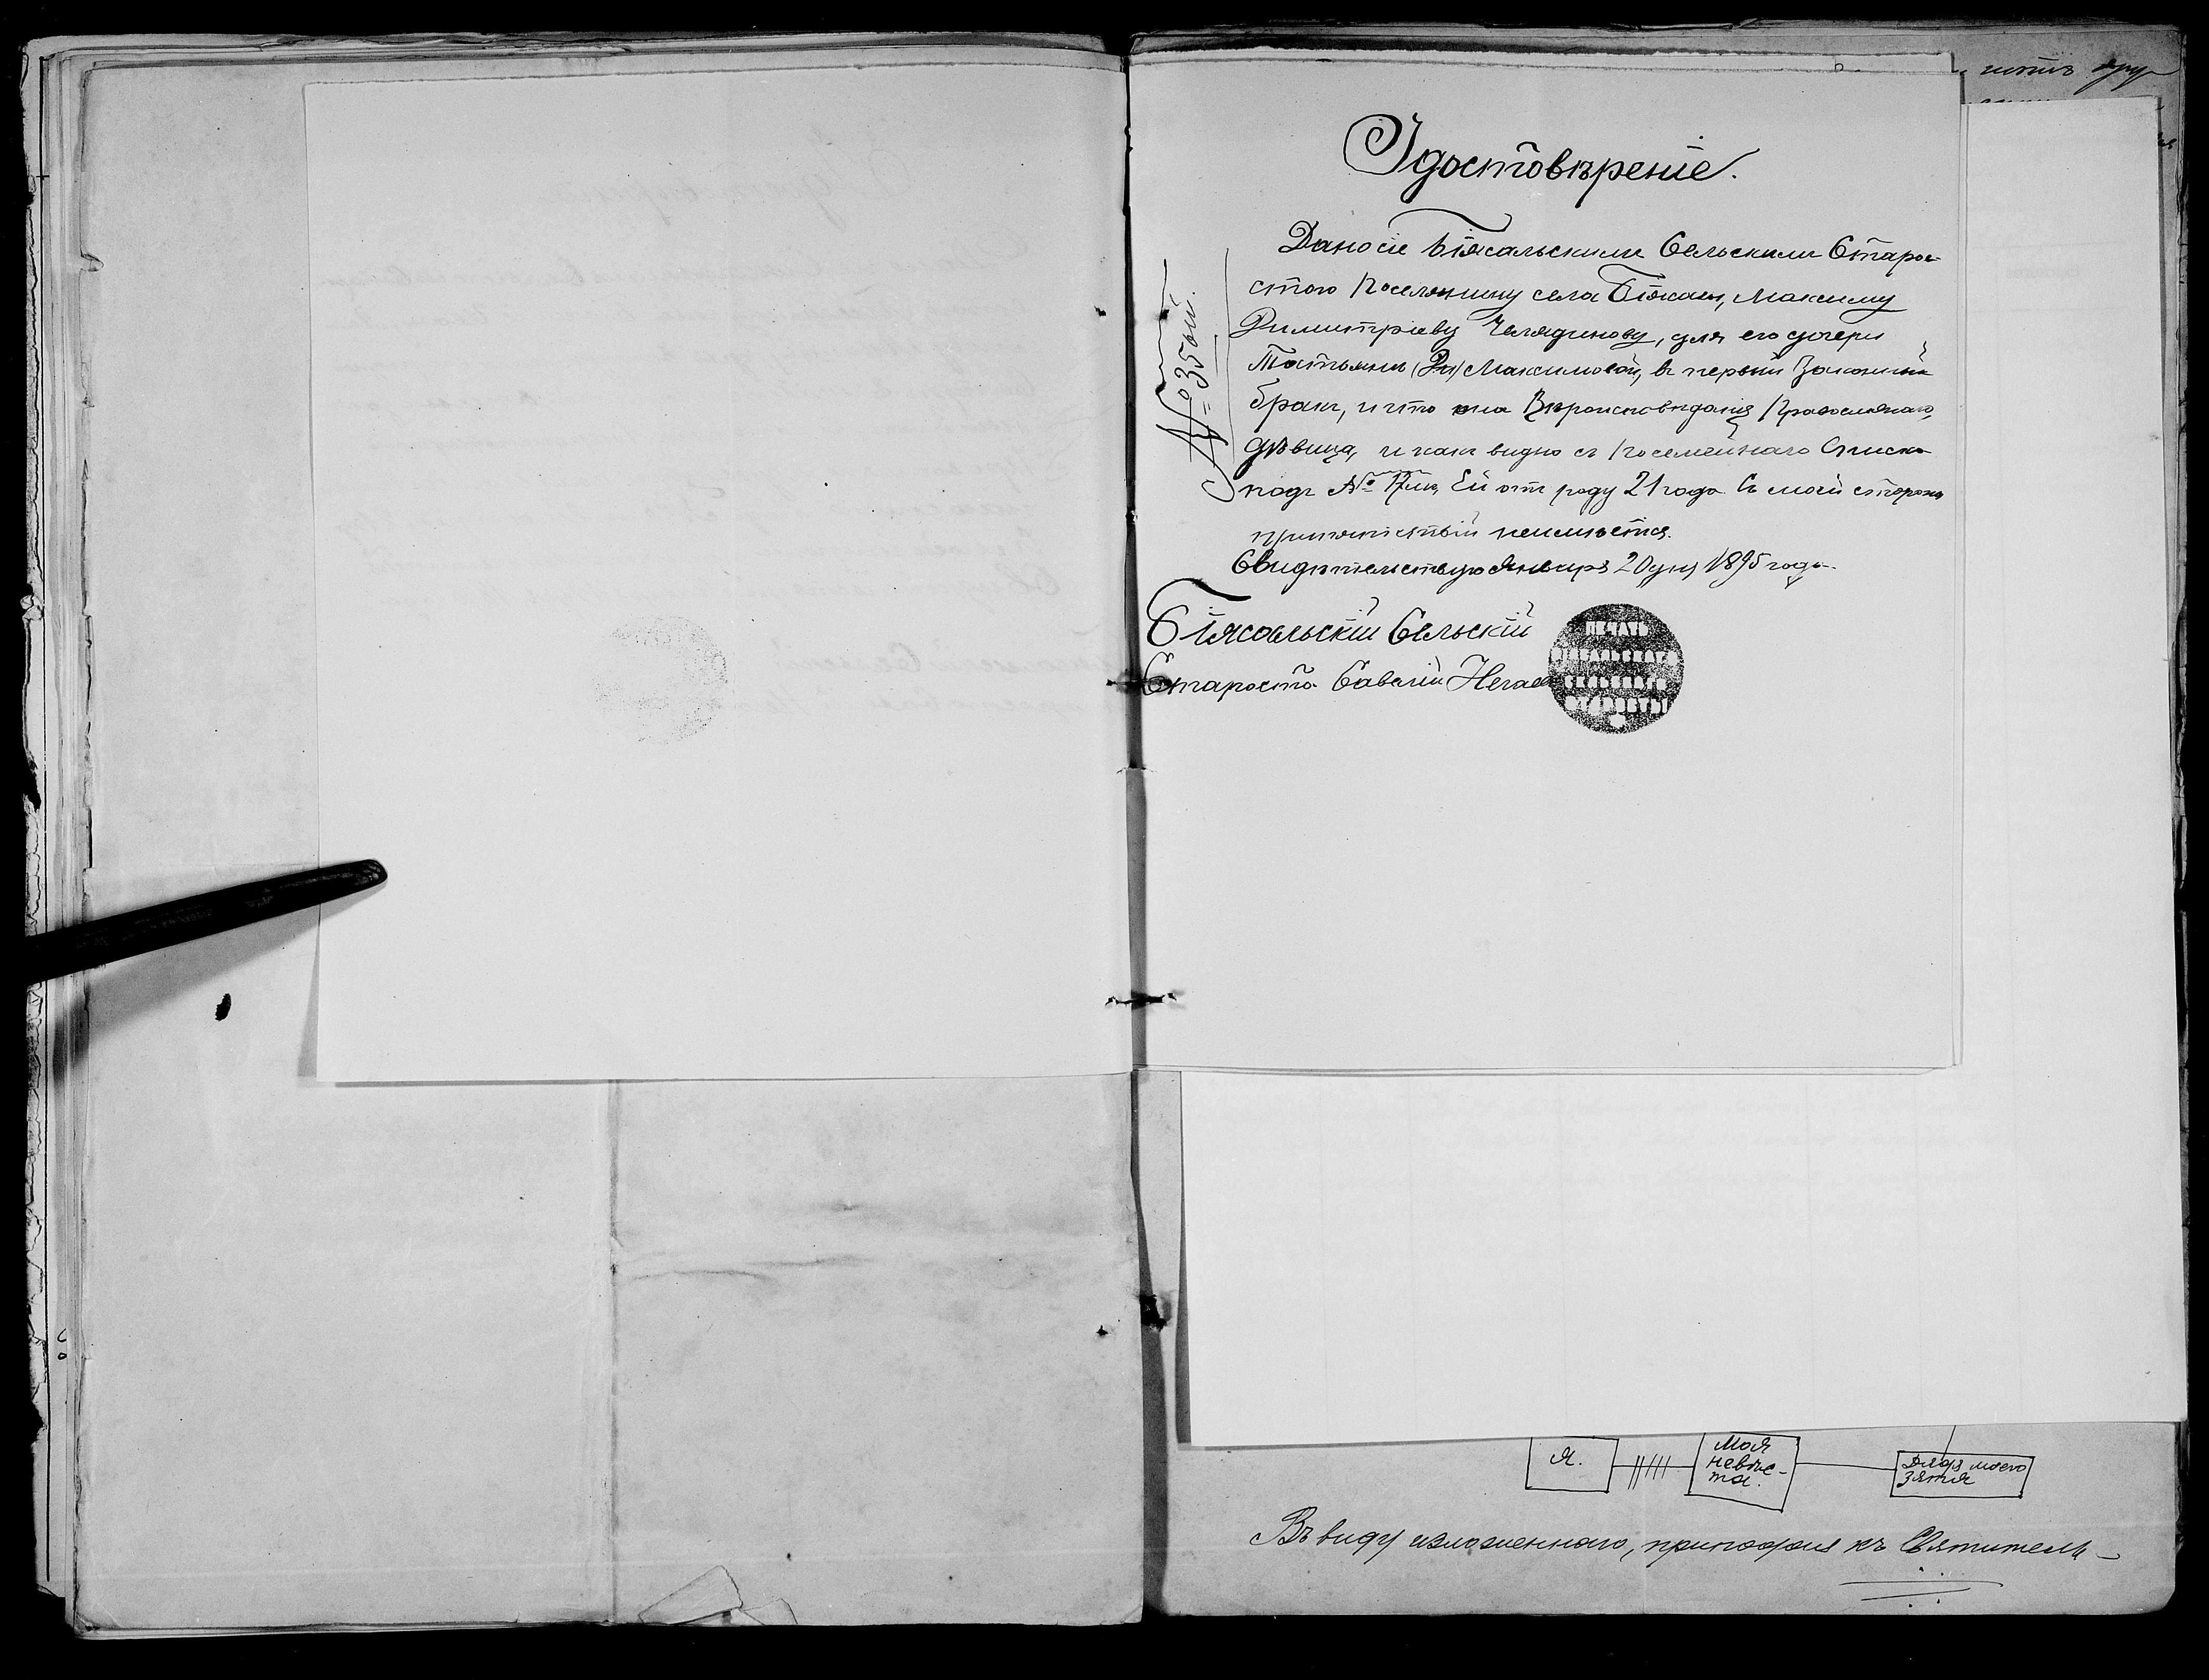 Удостовѣреніе.
Дано сіе Біясальскимъ Сельскимъ Старо-
стою Поселянину села Біясалы, Максиму
Димитріеву Челядинову, для его дочери
Татьяны Максимовой, въ первый Законный
бракъ, и что она Вѣроисповѣданія Православнаго,
дѣвица, и какъ видно съ Посемейнаго Списка
подъ № Ей отъ роду 21 года Съ моей стороны
препятствій неимѣется.
Свидѣтельствую Января 20 дня 1895 года.
Біясальскій Сельскій
Староста Савелій
№ 35
ПЕЧАТЬ
БІЯСАЛЬСКАГО
СЕЛЬСКАГО
СТАРОСТЫ
Я.
Моя
невѣс-
та.
Дядя моего
зятя
Въ виду изложеннаго, припадая къ Святитель-